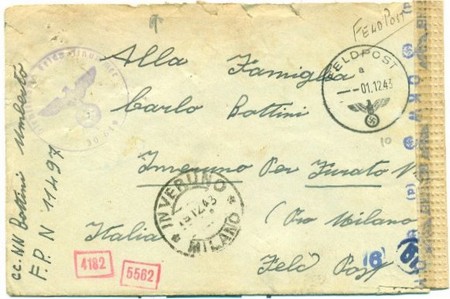 FELDPOST
Alla Famiglia
Carlo Bottini
Inveruno Per Furato
(Pro Milano
Italia
Feld Post
FELDPOST
a
--01.12.43
INVERUNO
12.43
MILANO
4182
5562
Bottini Umberto
F.P. N 11497
16
10